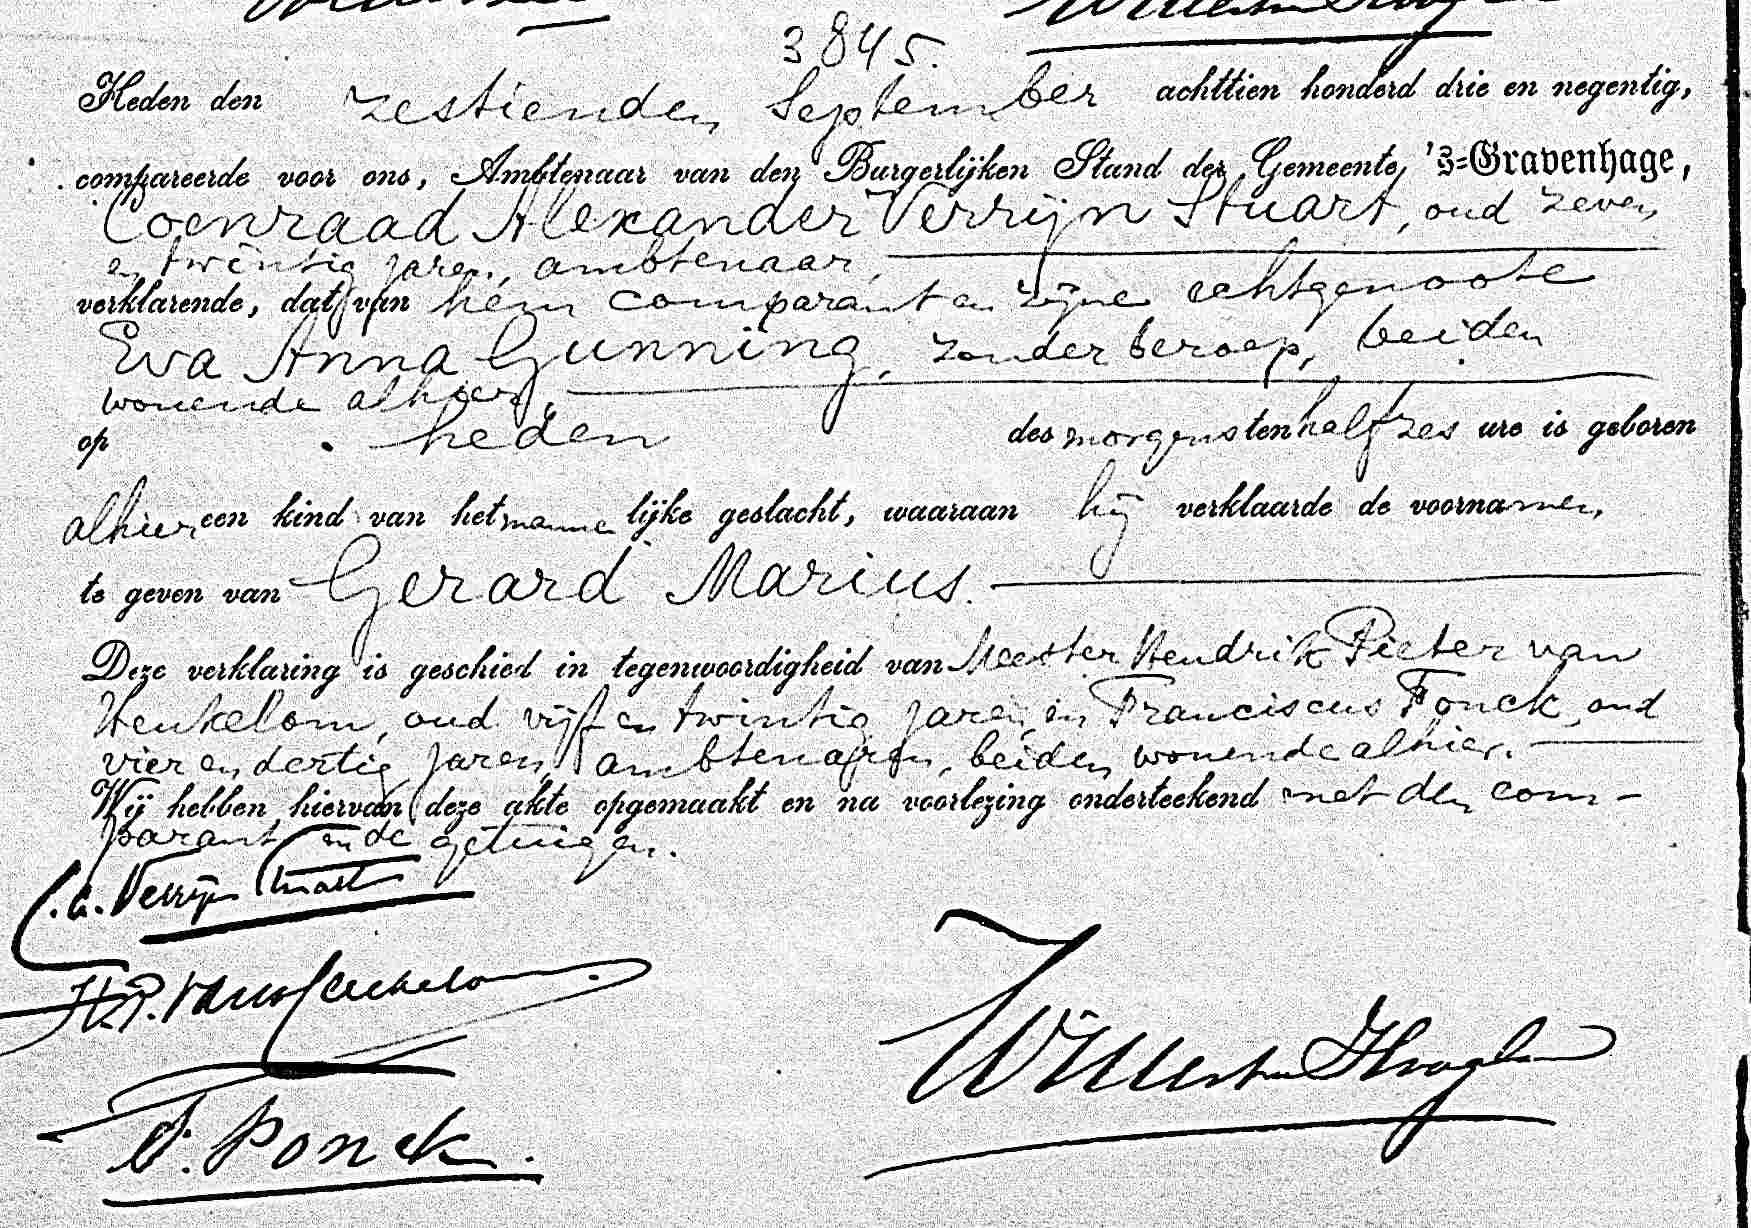 3845.
Heden den zestienden September achttien honderd drie en negentig,
compareerde voor ons, Ambtenaar van den Burgerlijken Stand der Gemeente 's-Gravenhage,
Coenraad Alexander Verrijn Stuart, oud zeven
en twintig jaren, ambtenaar,
verklarende, dat van hem comparant en zijne echtgenoote
Eva Anna Gunning, zonder beroep, beiden
wonende alhier,
op heden des morgens ten half zes ure is geboren
alhier een kind van het mannelijke geslacht, waaraan hij verklaarde de voornamen
te geven van Gerard Marius.
Deze verklaring is geschied in tegenwoordigheid van Meester Hendrik Pieter van
Heukelom, oud vijf en twintig jaren en Franciscus Fonck, oud
vier en dertig jaren, ambtenaren, beiden wonende alhier.
Wij hebben hiervan deze akte opgemaakt en na voorlezing onderteekend met den com-
parant en de getuigen.
C.A. Verrijn Stuart
H.P. van Heukelom
F. Fonck.